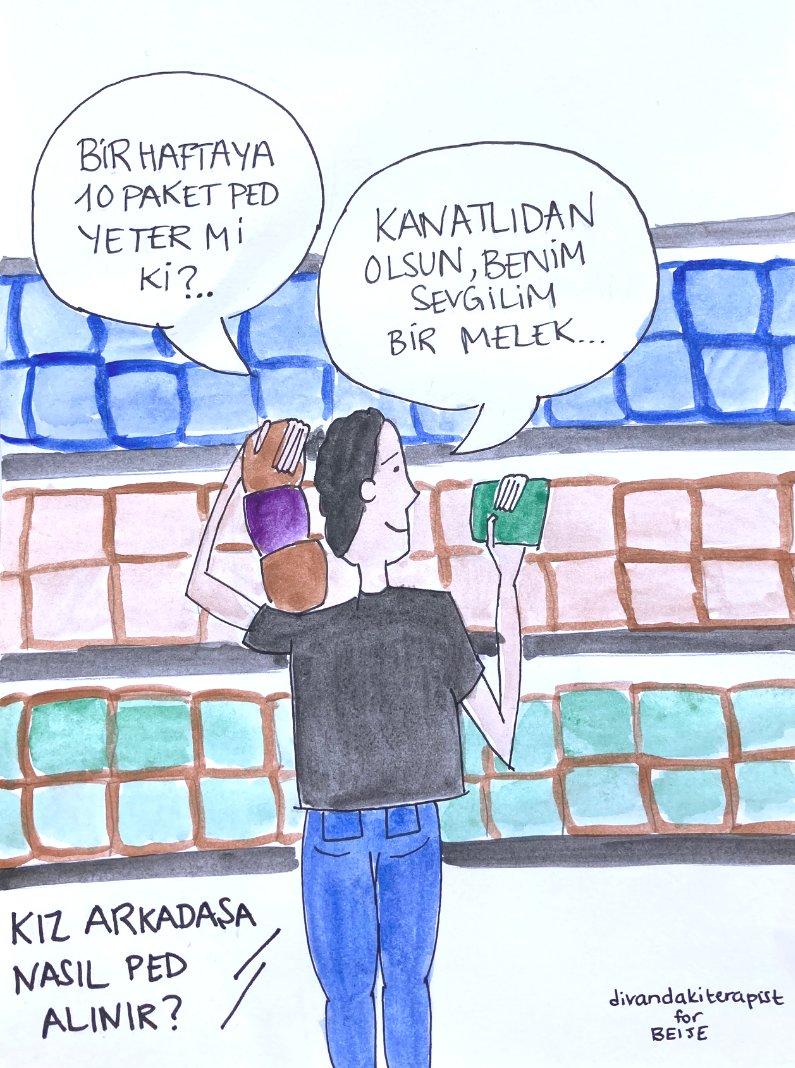 BİR HAFTAYA
10 PAKET PED
YETER Mİ
Kİ?..
KANATLIDAN
OLSUN, BENİM
SEVGİLİM
BİR MELEK...
KIZ ARKADAŞA
NASIL PED
ALINIR?
divandakiterapist
for
BEIJE